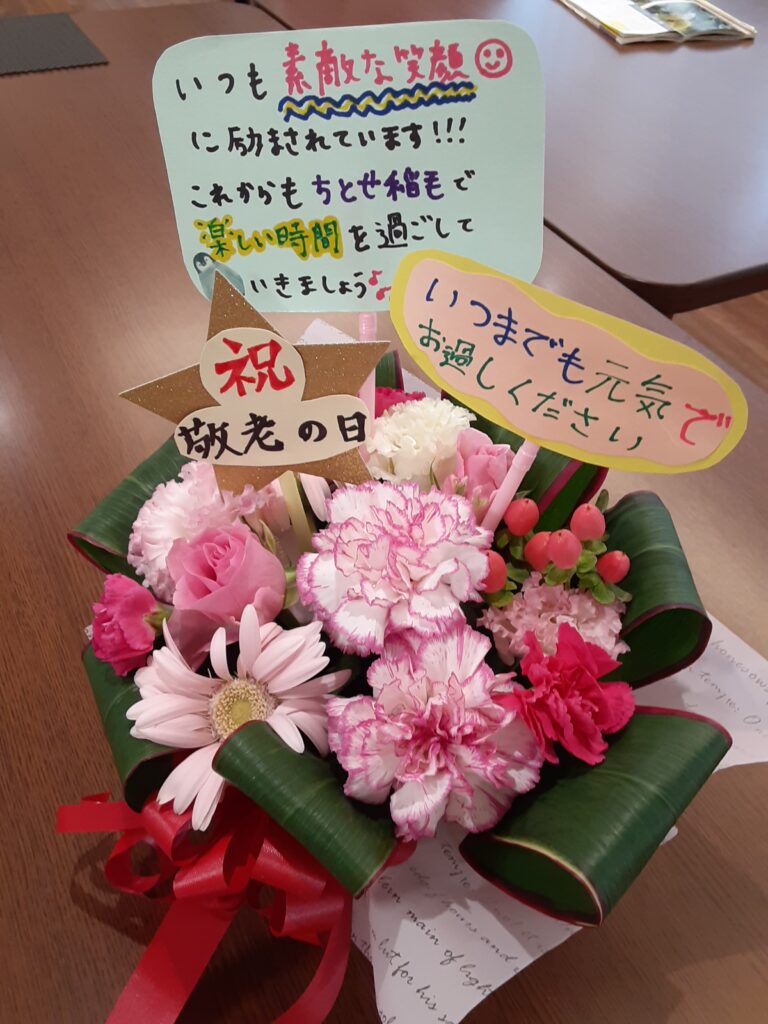 いつも素敵な笑顔
に励まされています!!!
これからもちとせ稲毛で
楽しい時間を過ごして
いきましょう♪
祝
敬老の日
いつまでも元気で
お過しください
main of
but for his